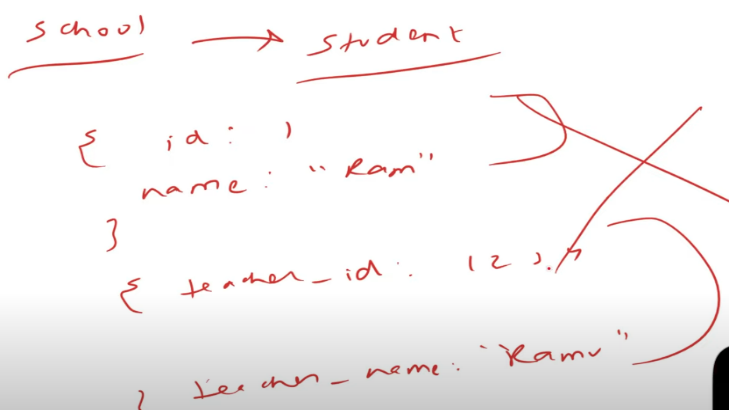 School → Student
{ id : 1
name : "Ram"
}
{ teacher_id : 123
} teacher_name : "Ramu"